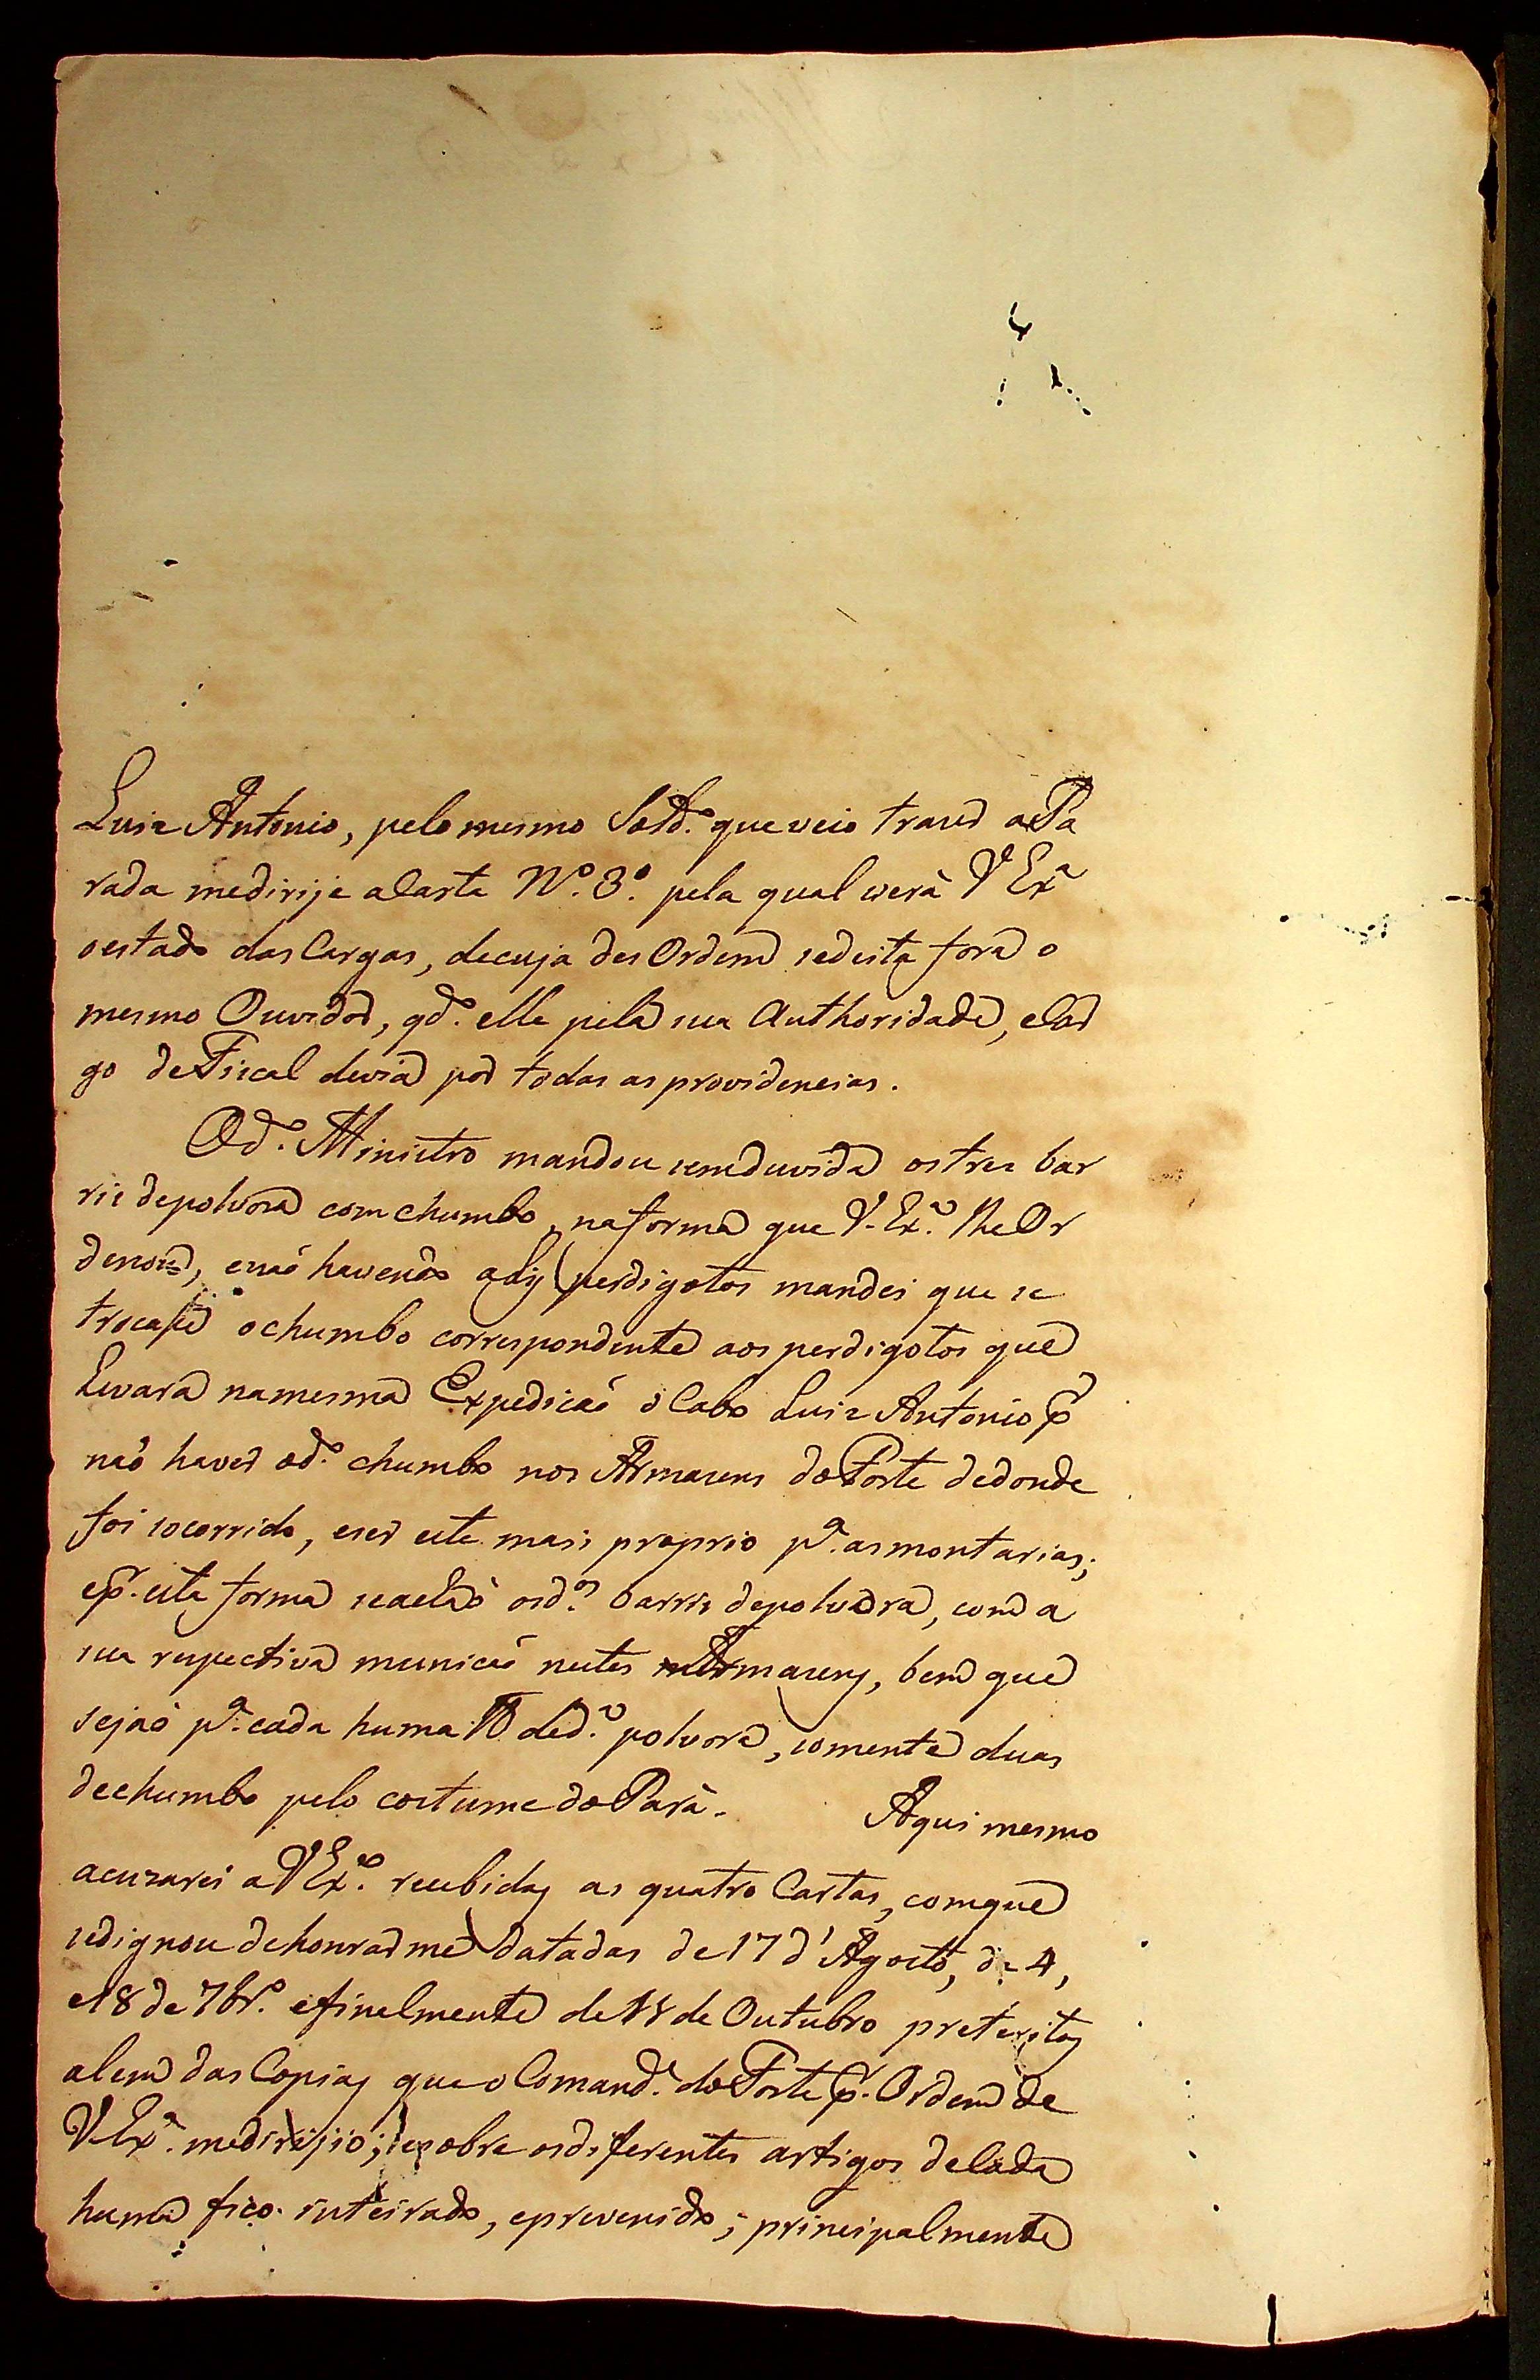 Luiz Antonio, pelo mesmo Sold.º que veio trazer a Pa
rada me dirije a Carta N.º 3.º pela qual verà V Exª
o estado das Cargas, de cuja des Ordem se deita fora o
mesmo Ouvidor, qd.º elle pela sua Authoridade, e Car
go de Fiscal devia por todas as providencias.
O d.º Ministro mandou sem duvida os tres bar
ris de polvora com chumbo, na forma que V. Ex.ª lhe Or
denou, e naõ havendo alij perdigotos mandei que se
trocasse o chumbo correspondente aos perdigotos que
Levara na mesma Expedicaõ o Cabo Luiz Antonio p.
naõ haver o d.º chumbo nos Armazens do Forte dedonde
foi socorrido, e ser este mais proprio p.ª as montarias;
e p.r esta forma se achaõ os d.os barris de polvora, com a
sua respectiva municaõ nestes Armazens, bem que
sejaõ p.ª cada huma lb de d.ª polvora, somente duas
de chumbo pelo costume do Parà. Aqui mesmo
acuzarei a V Ex.ª recebidas as quatro Cartas, com que
se dignou de honrar me datadas de 17 d'Agosto, de 4,
e 18 de 7br.º e finalmente de 18 de Outubro preteritos
alem das Copias que o Comand.e do Forte p.r Ordem de
V. Ex.ª me dirijio; e sobre os diferentes artigos de Cada
huma fico inteirado, e prevenido; principalmente